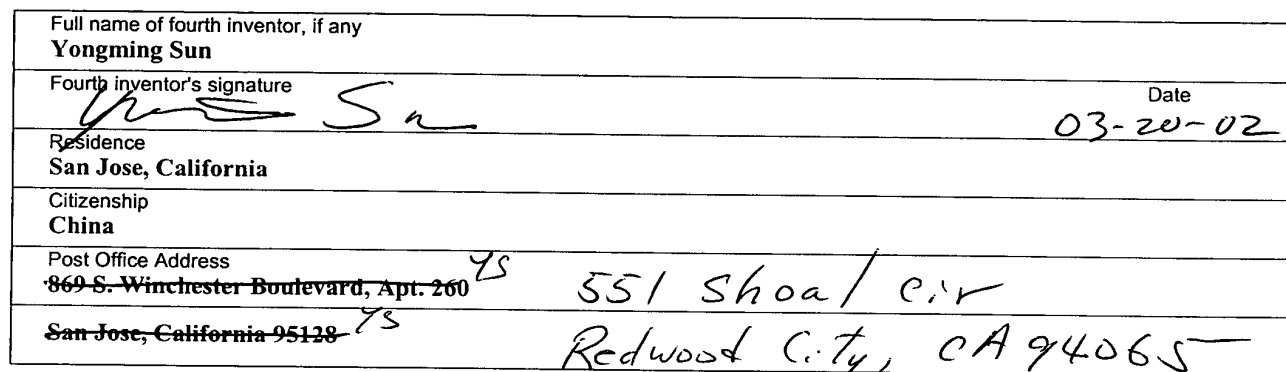 Full name of fourth inventor, if any
Yongming Sun
Fourth inventor's signature
Date
03-20-02
Residence
San Jose, California
Citizenship
China
Post Office Address
869 S. Winchester Boulevard, Apt. 260 YS 551 Shoal Cir
San Jose, California 95128 YS Redwood City, CA 94065